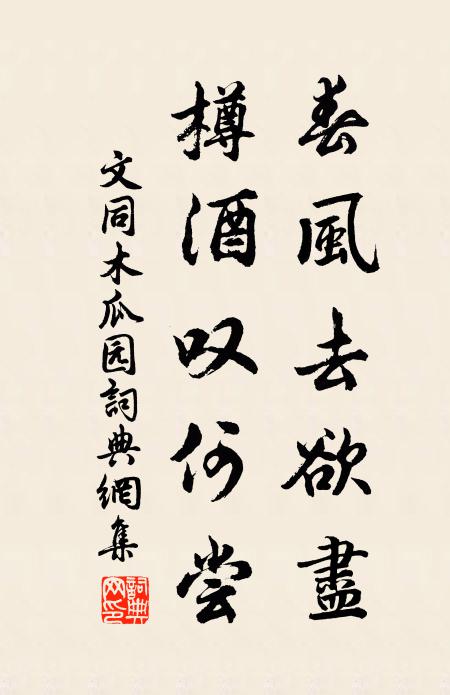 春風去欲盡
樽酒叹何尝
文同木瓜园詞典網集
詞典網印